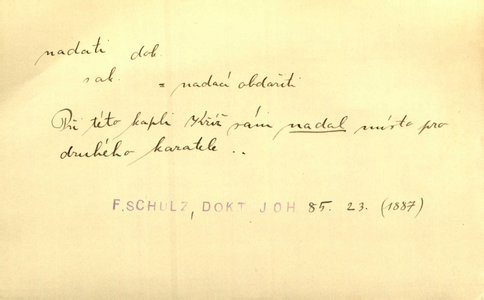 nadati dok.
sak. = nadací obdařiti
Při této kapli Kříž sám nadal místo pro
druhého kazatele ..
F. SCHULZ, DOKT. JOH 85. 23. (1887)